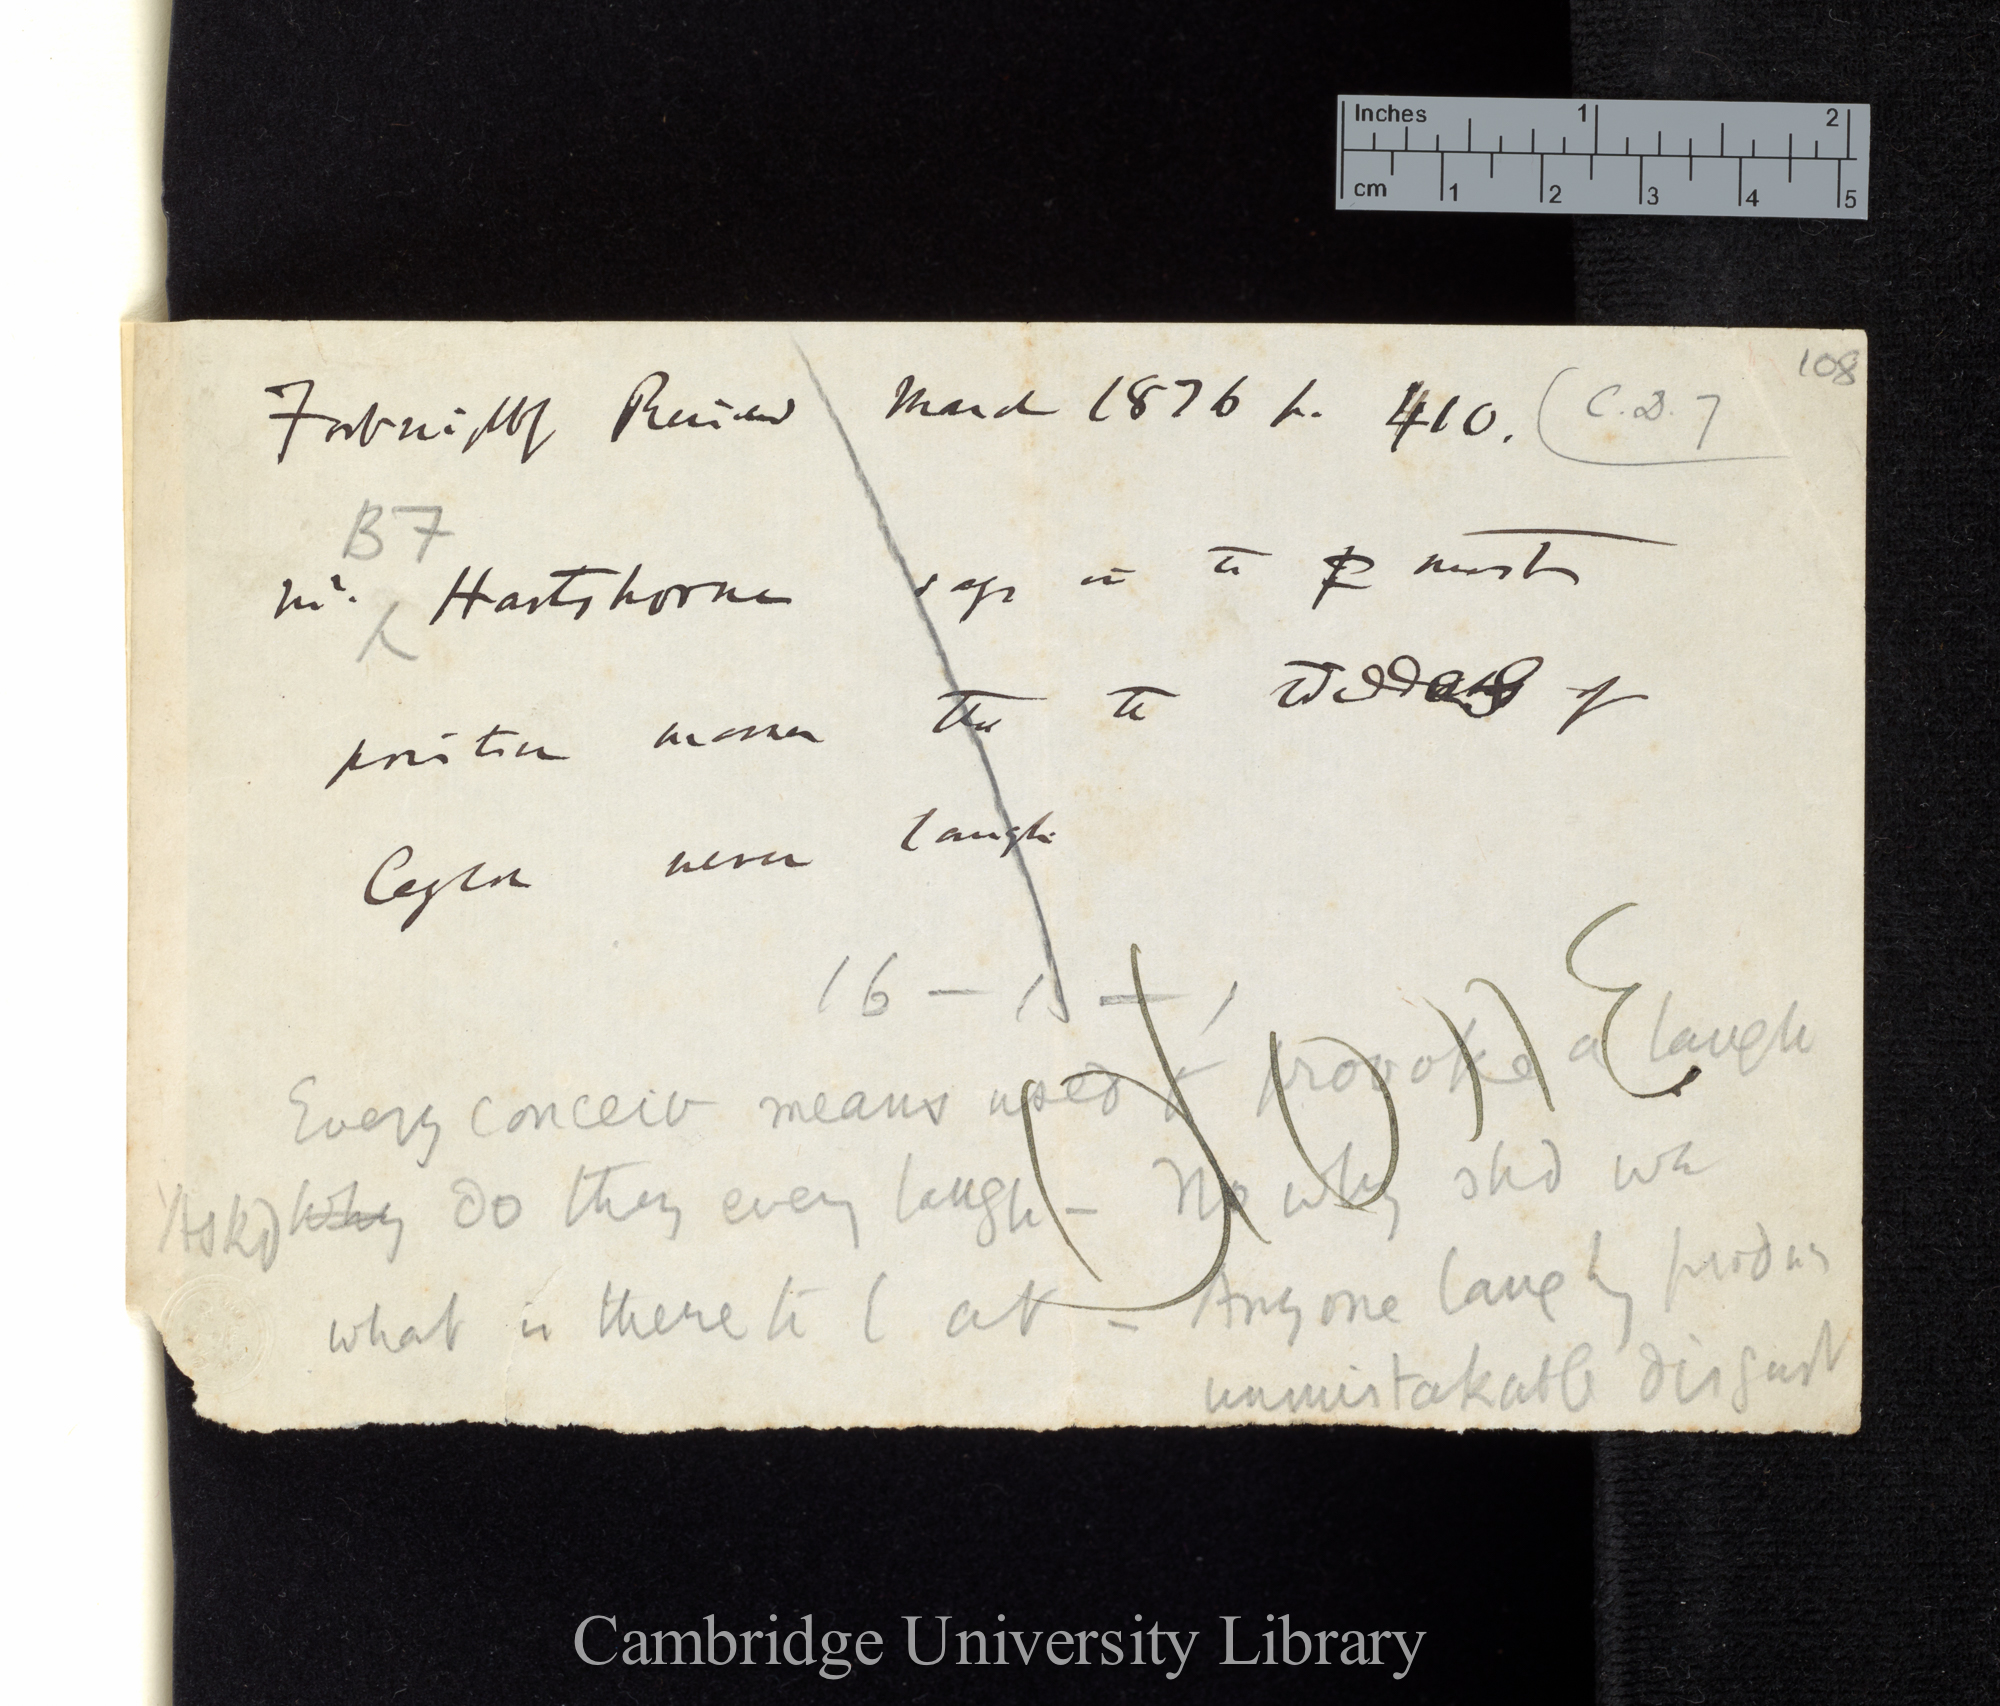 Inches 1 2
cm 1 2 3 4 5
108
Fortnightly Review March 1876 p. 410. (C. D. 7
B 7
Mr. Hartshorne says in the p most
positive manner that the Weddas of
Ceylon never laugh
16 — 1 — 1
Every conceiv means used to provoke a laugh
Askd Why do they every laugh — No why shd we
what is there to l at — Anyone laughg produces
unmistakable disgust
DONE
Cambridge University Library